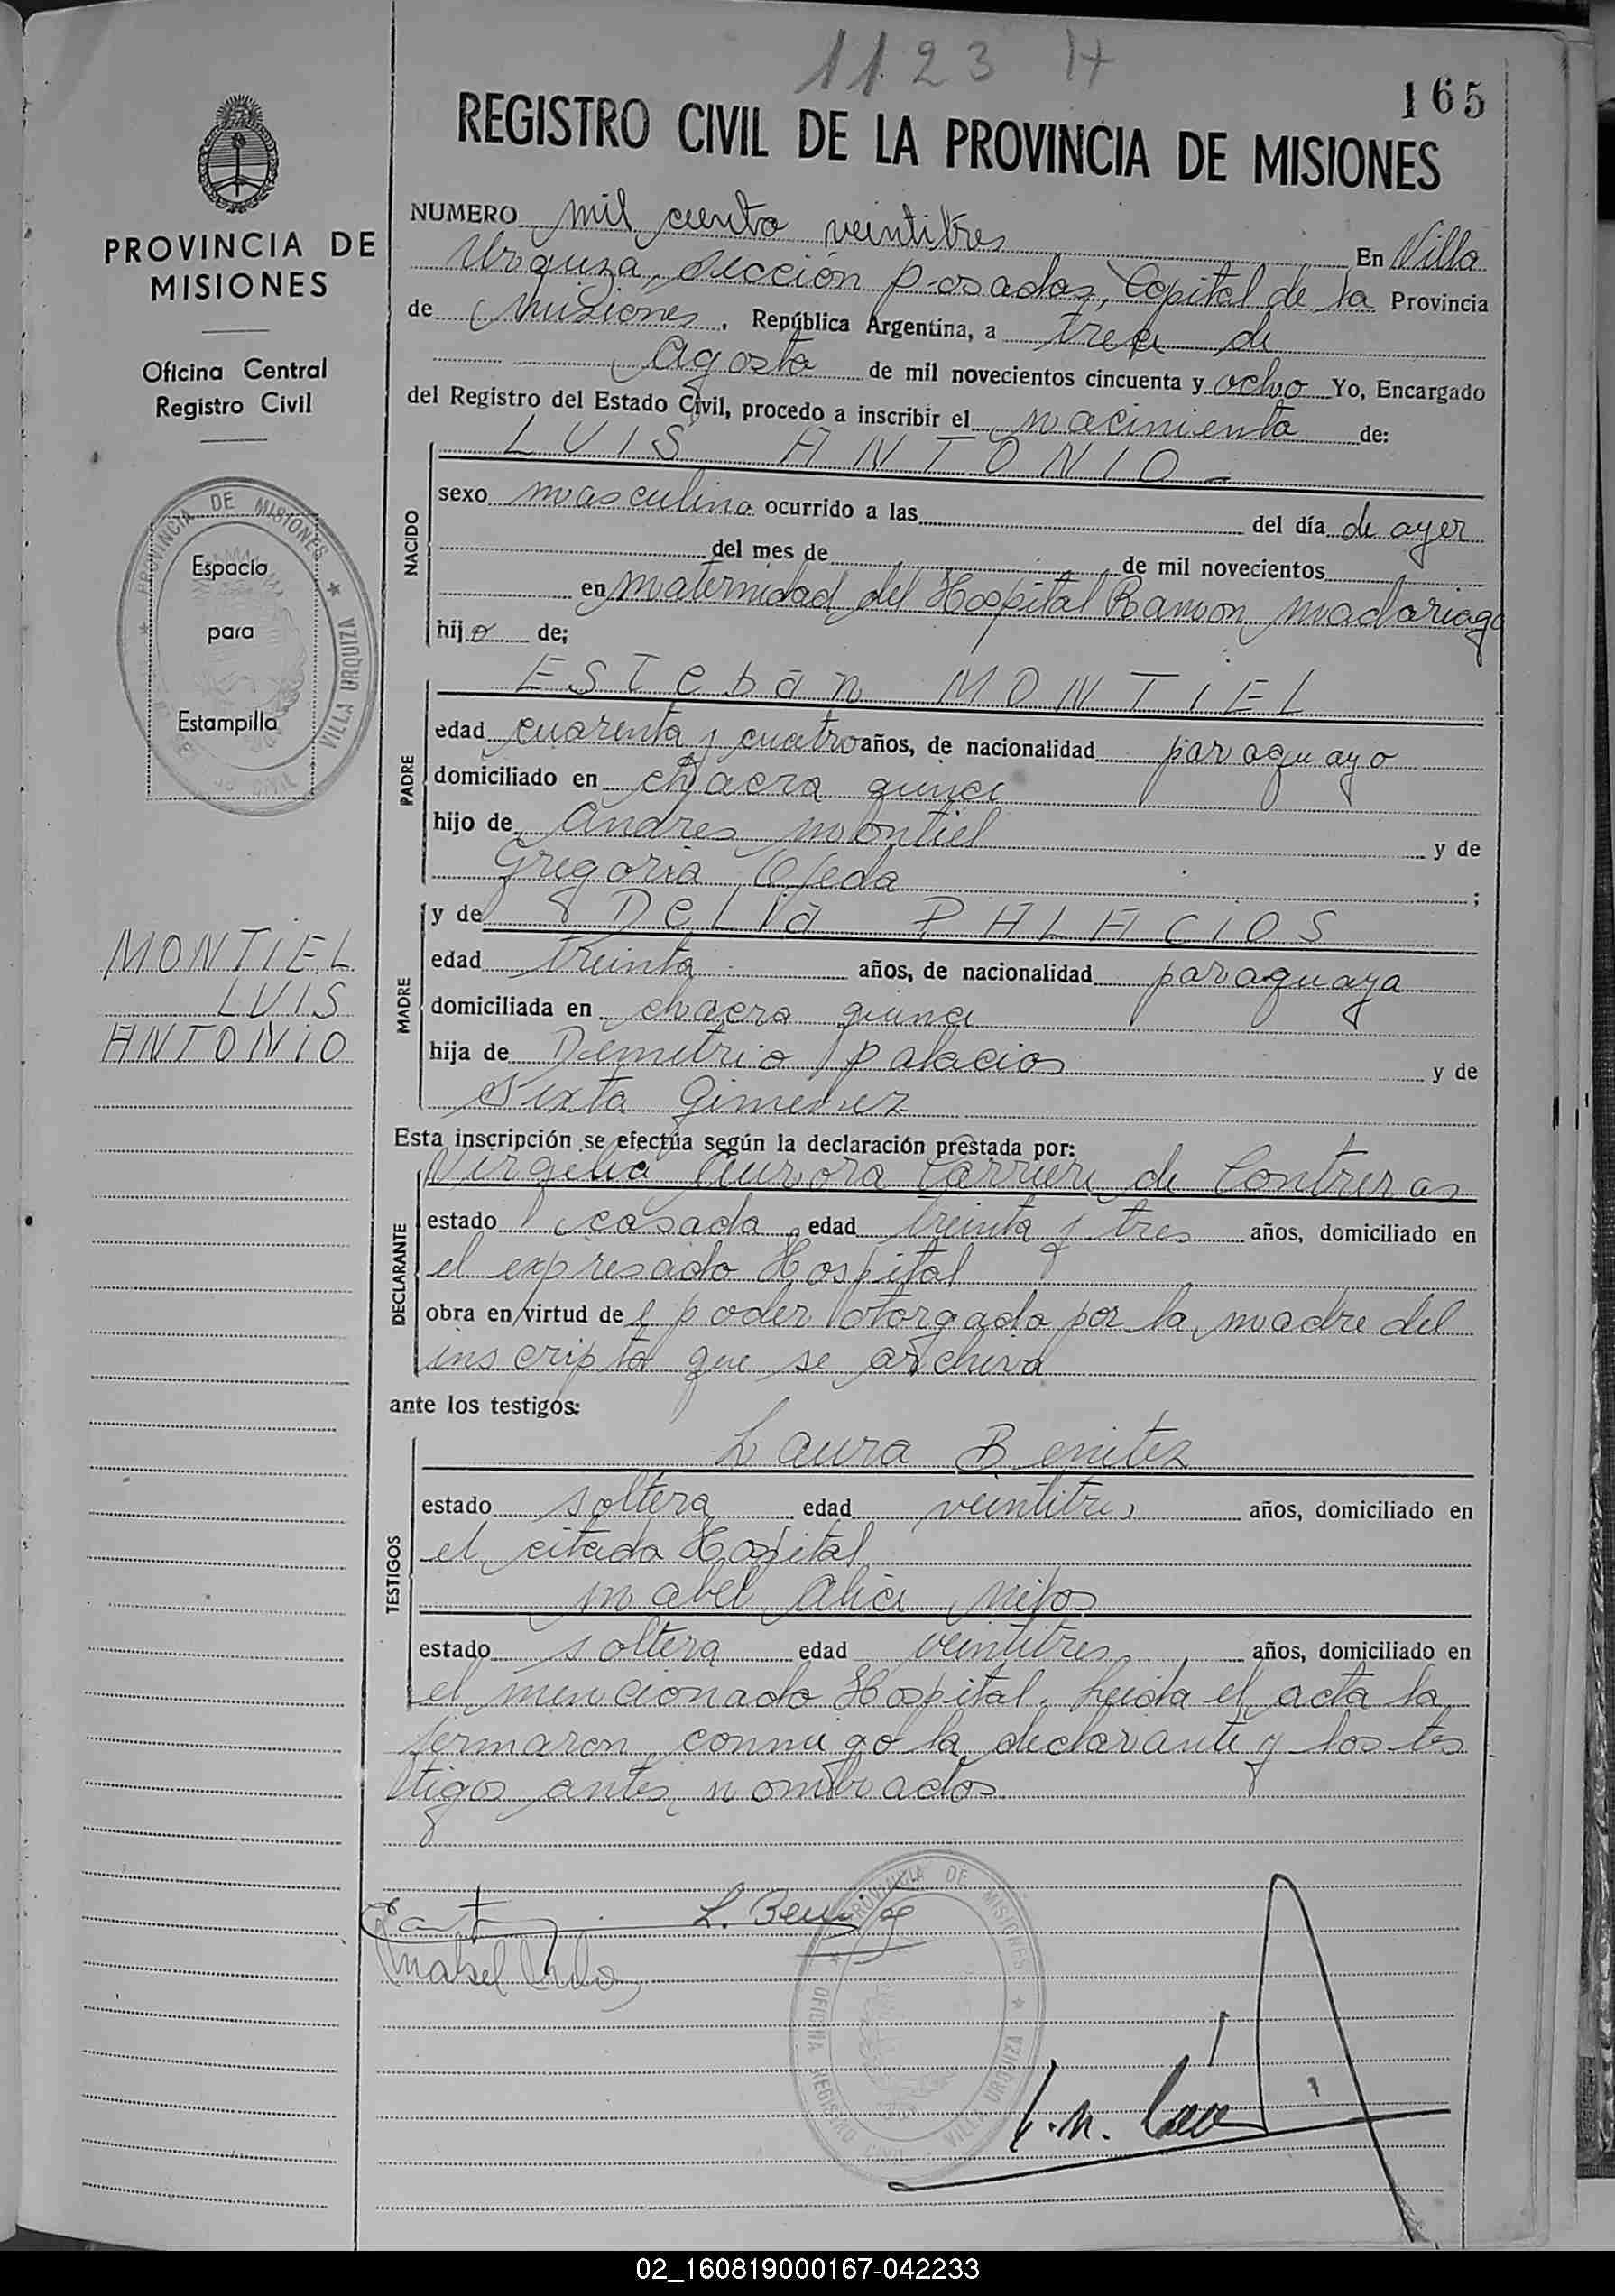 1123 H
165
REGISTRO CIVIL DE LA PROVINCIA DE MISIONES
PROVINCIA DE
MISIONES
Oficina Central
Registro Civil
PROVINCIA DE MISIONES ★ VILLA URQUIZA
Espacio
para
Estampilla
MONTIEL
LUIS
ANTONIO
NUMERO mil ciento veintitres En Villa
Urquiza, sección Posadas, Capital de la Provincia
de Misiones, República Argentina, a trece de
Agosto de mil novecientos cincuenta y ocho Yo, Encargado
del Registro del Estado Civil, procedo a inscribir el nacimiento de:
LUIS ANTONIO
NACIDO
sexo masculino ocurrido a las del día de ayer
del mes de de mil novecientos
en maternidad del Hospital Ramon Madariaga
hijo de;
PADRE
Esteban MONTIEL
edad cuarenta y cuatro años, de nacionalidad paraguayo
domiciliado en chacra quince
hijo de Andres Montiel y de
Gregoria Ojeda ;
MADRE
y de Delia PALACIOS
edad treinta años, de nacionalidad paraguaya
domiciliada en chacra quince
hija de Demetrio Palacios y de
Sixta Gimenez
Esta inscripción se efectúa según la declaración prestada por:
DECLARANTE
Virgilia Aurora de Contreras
estado casada edad treinta y tres años, domiciliado en
el expresado Hospital
obra en virtud del poder otorgado por la madre del
inscripto que se archiva
ante los testigos:
TESTIGOS
Laura Benitez
estado soltera edad veintitres años, domiciliado en
el citado Hospital
Mabel Alice
estado soltera edad veintitres años, domiciliado en
el mencionado Hospital. Leida el acta la
firmaron conmigo la declarante y los tes
tigos antes nombrados
L. Benitez
Mabel
PROVINCIA DE MISIONES ★ OFICINA REGISTRO CIVIL - VILLA URQUIZA
02_160819000167-042233